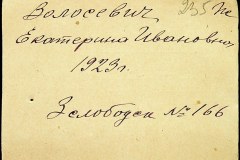 Волосевич
Екатерина Иванович
1923 г.
Зслободск № 166